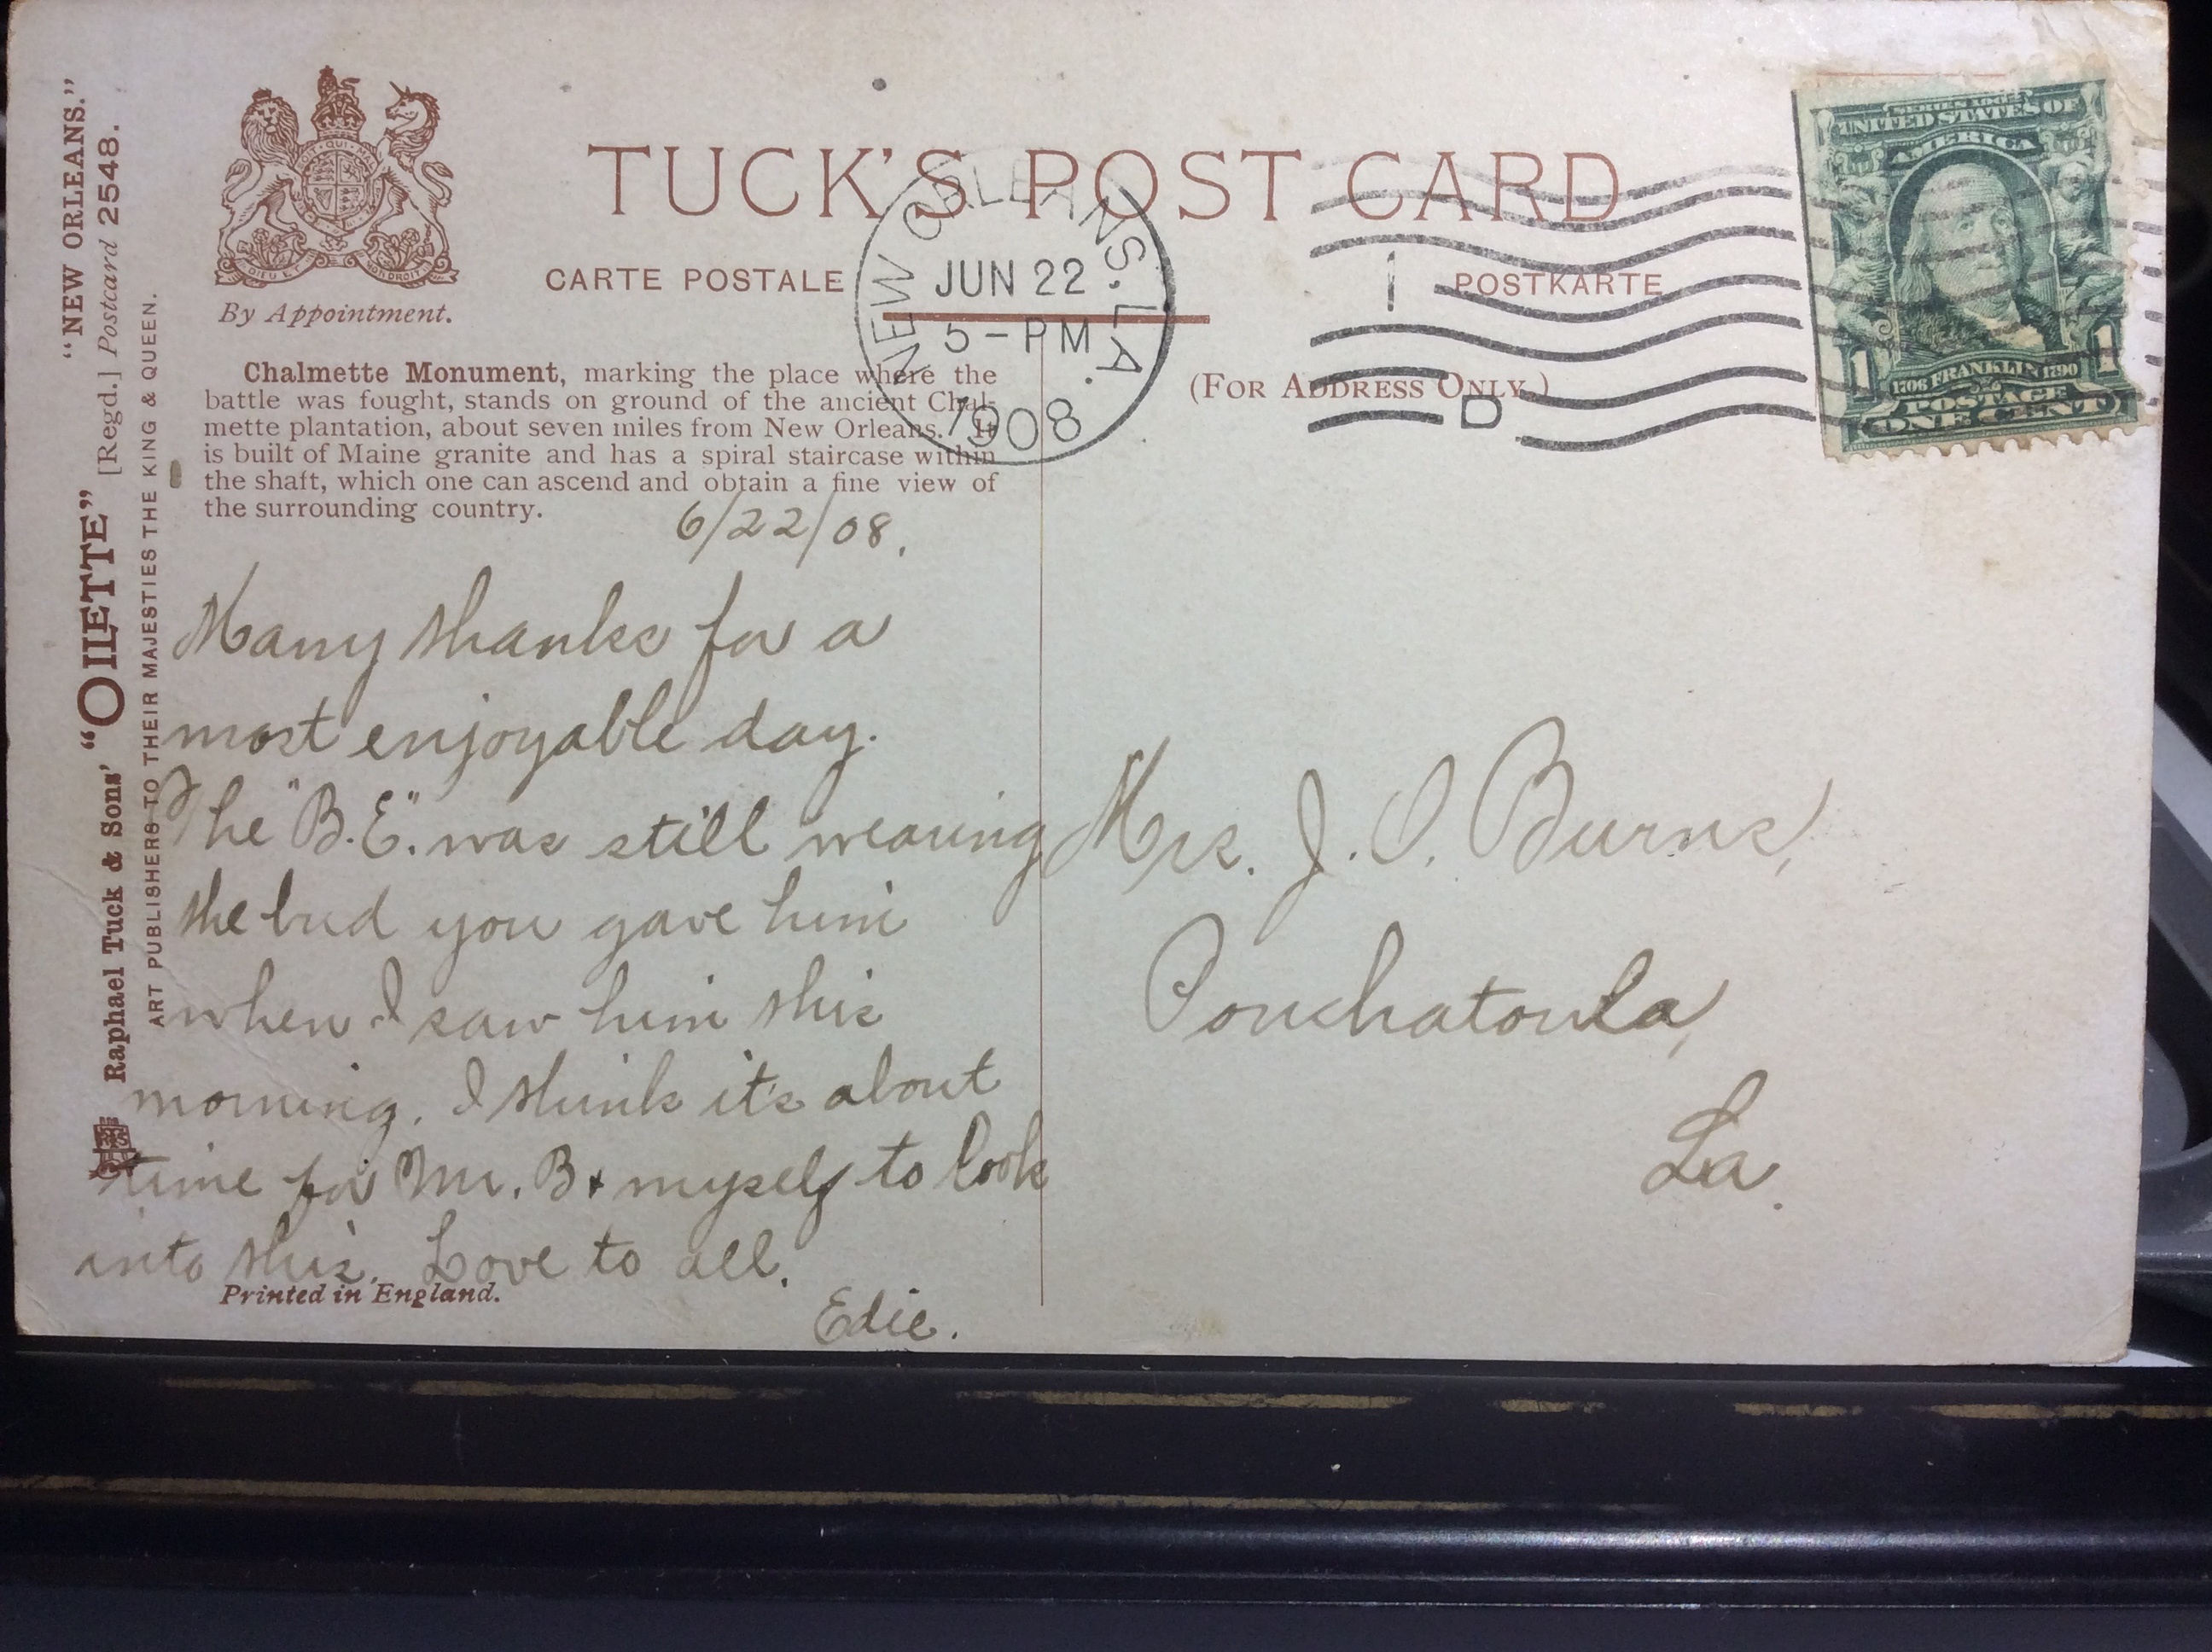 "NEW ORLEANS."
[Regd.] Postcard 2548.
Raphael Tuck & Sons' "OILETTE"
ART PUBLISHERS TO THEIR MAJESTIES THE KING & QUEEN.
DIEU ET MON DROIT
By Appointment.
TUCK'S POST CARD
CARTE POSTALE
POSTKARTE
NEW ORLEANS. LA.
JUN 22
5-PM
1908
1
D
(FOR ADDRESS ONLY.)
SERIES 1902
UNITED STATES OF
AMERICA
1706 FRANKLIN 1790
1 1
POSTAGE
ONE CENT
Chalmette Monument, marking the place where the
battle was fought, stands on ground of the ancient Chal-
mette plantation, about seven miles from New Orleans. It
is built of Maine granite and has a spiral staircase within
the shaft, which one can ascend and obtain a fine view of
the surrounding country.
6/22/08.
Many thanks for a
most enjoyable day.
The "B.E." was still wearing
the bud you gave him
when I saw him this
morning. I think it's about
time for Mr. B & myself to look
into this. Love to all.
Edie.
Printed in England.
Mrs. J. O. Burns,
Ponchatoula,
La.